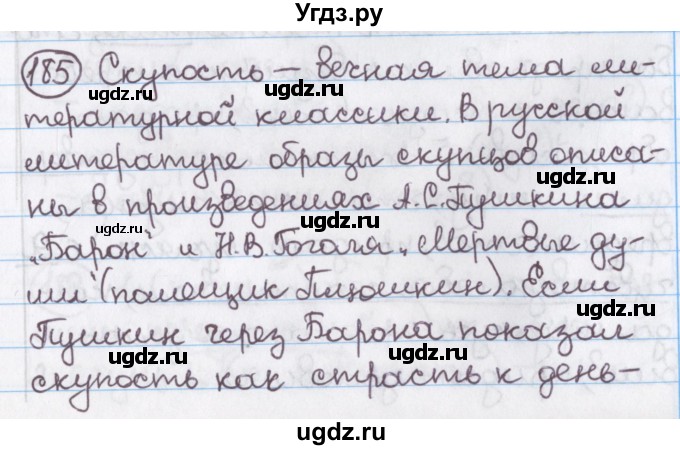 Угдз.ру
185 Скупость – вечная тема ли-
ugdz.ru ugdz.ru
тературной классики. В русской
литературе образы скупцов описа-
ugdz.ru
ны в произведениях А.С.Пушкина
ugdz.ru ugdz.ru
„Барон" и Н.В.Гоголя „Мертвые ду-
ши" (помещик Плюшкин). Если
ugdz.ru ugdz.ru
Пушкин через Барона показал
ugdz.ru
скупость как страсть к день-
ugdz.ru
ugdz.ru